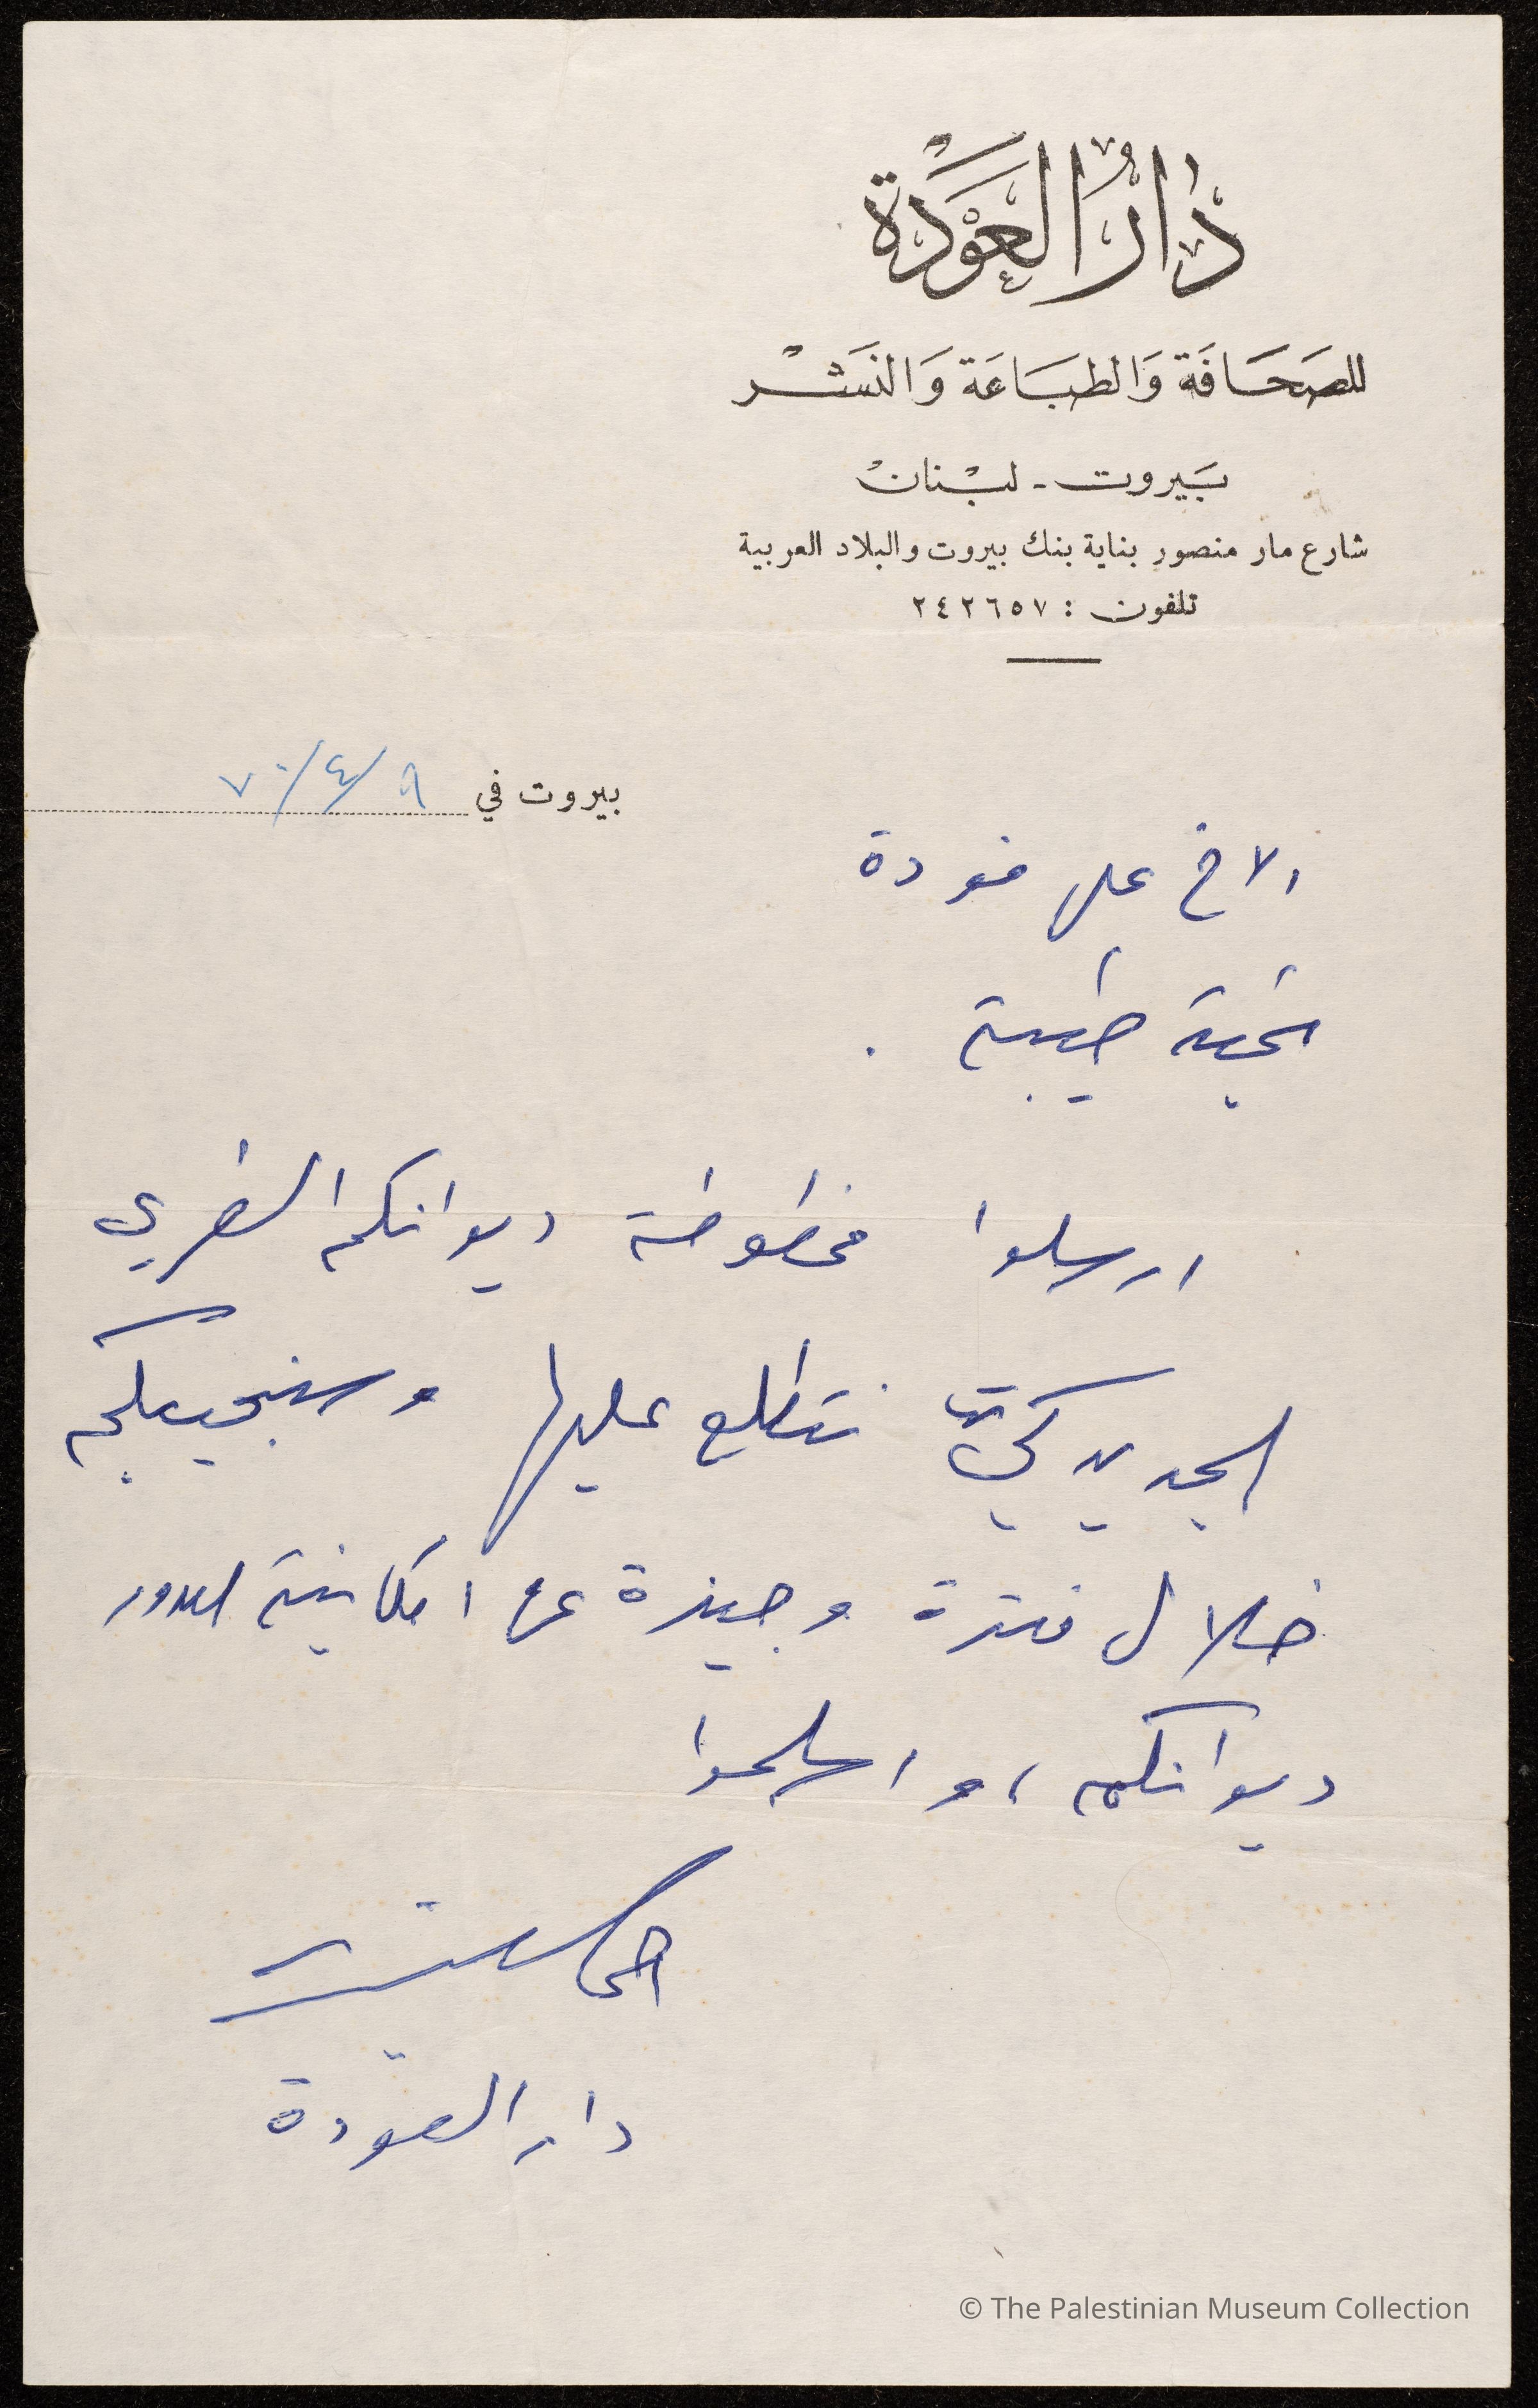 دَارُ العَوْدَة
للصَحَافَة وَالطبَاعَة وَالنَشْر
بَيروت - لبْنان
شارع مار منصور بناية بنك بيروت والبلاد العربية
تلفون : ٢٤٢٦٥٧
بيروت في ٩/٤/٧٠
الاخ علي فودة
تحية طيبة .
ارسلوا مخطوطة ديوانكم الشعري
الجديد كي نطلع عليها وسنجيبكم
خلال فترة وجيزة عن امكانية
ديوانكم ، واسلموا
دار العودة
© The Palestinian Museum Collection